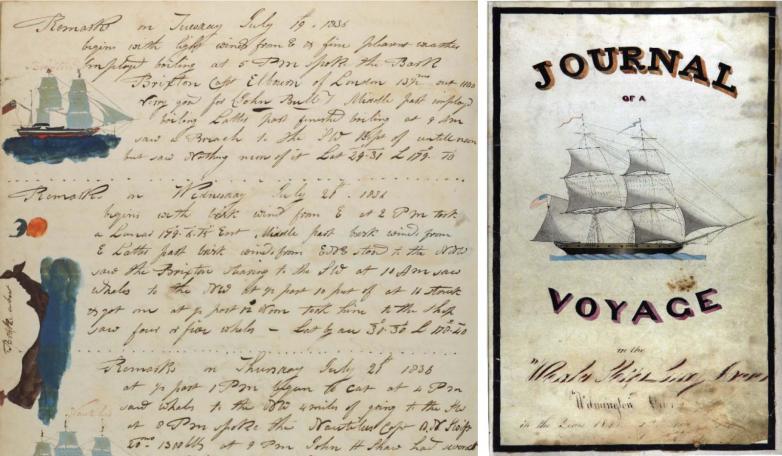 Remarks on Tuesday July 19. 1836
begins with light winds from E & fine pleasant weather
Employd boiling at 5 PM spoke the Bark
Brixton Capt of London 13½ mos out 1100
Very good for John Bull! Middle part employd
boiling Latter part finished boiling at 9 Am
saw a Breach to the SW of untill noon
but saw Nothing more of it Lat 29-31 L 179. 10
Remarks on Wednesday July 20th. 1836
begins with brisk wind from E at 2 PM took
a Lunar 179-6.15 East Middle part brisk winds from
E Latter part brisk winds from ENE stood to the NW
saw the Brixton to the SW at 10 Am saw
whales to the NW at ½ past 10 put off at 11 struck
& got one at ½ past 12 Noon took him to the ship
saw four or five whales - Lat by 30-30 L
Remarks on Thursday July 21st 1836
at ½ past 1 PM began to cut at 4 PM
saw whales to the NW 4 miles of going to the
at 8 PM spoke the Nautilus Capt
20 mos 1300 bbls at 9 PM John H Shaw had
JOURNAL
OF A
VOYAGE
in the
Whale Ship Lucy
Wilmington
in the Years